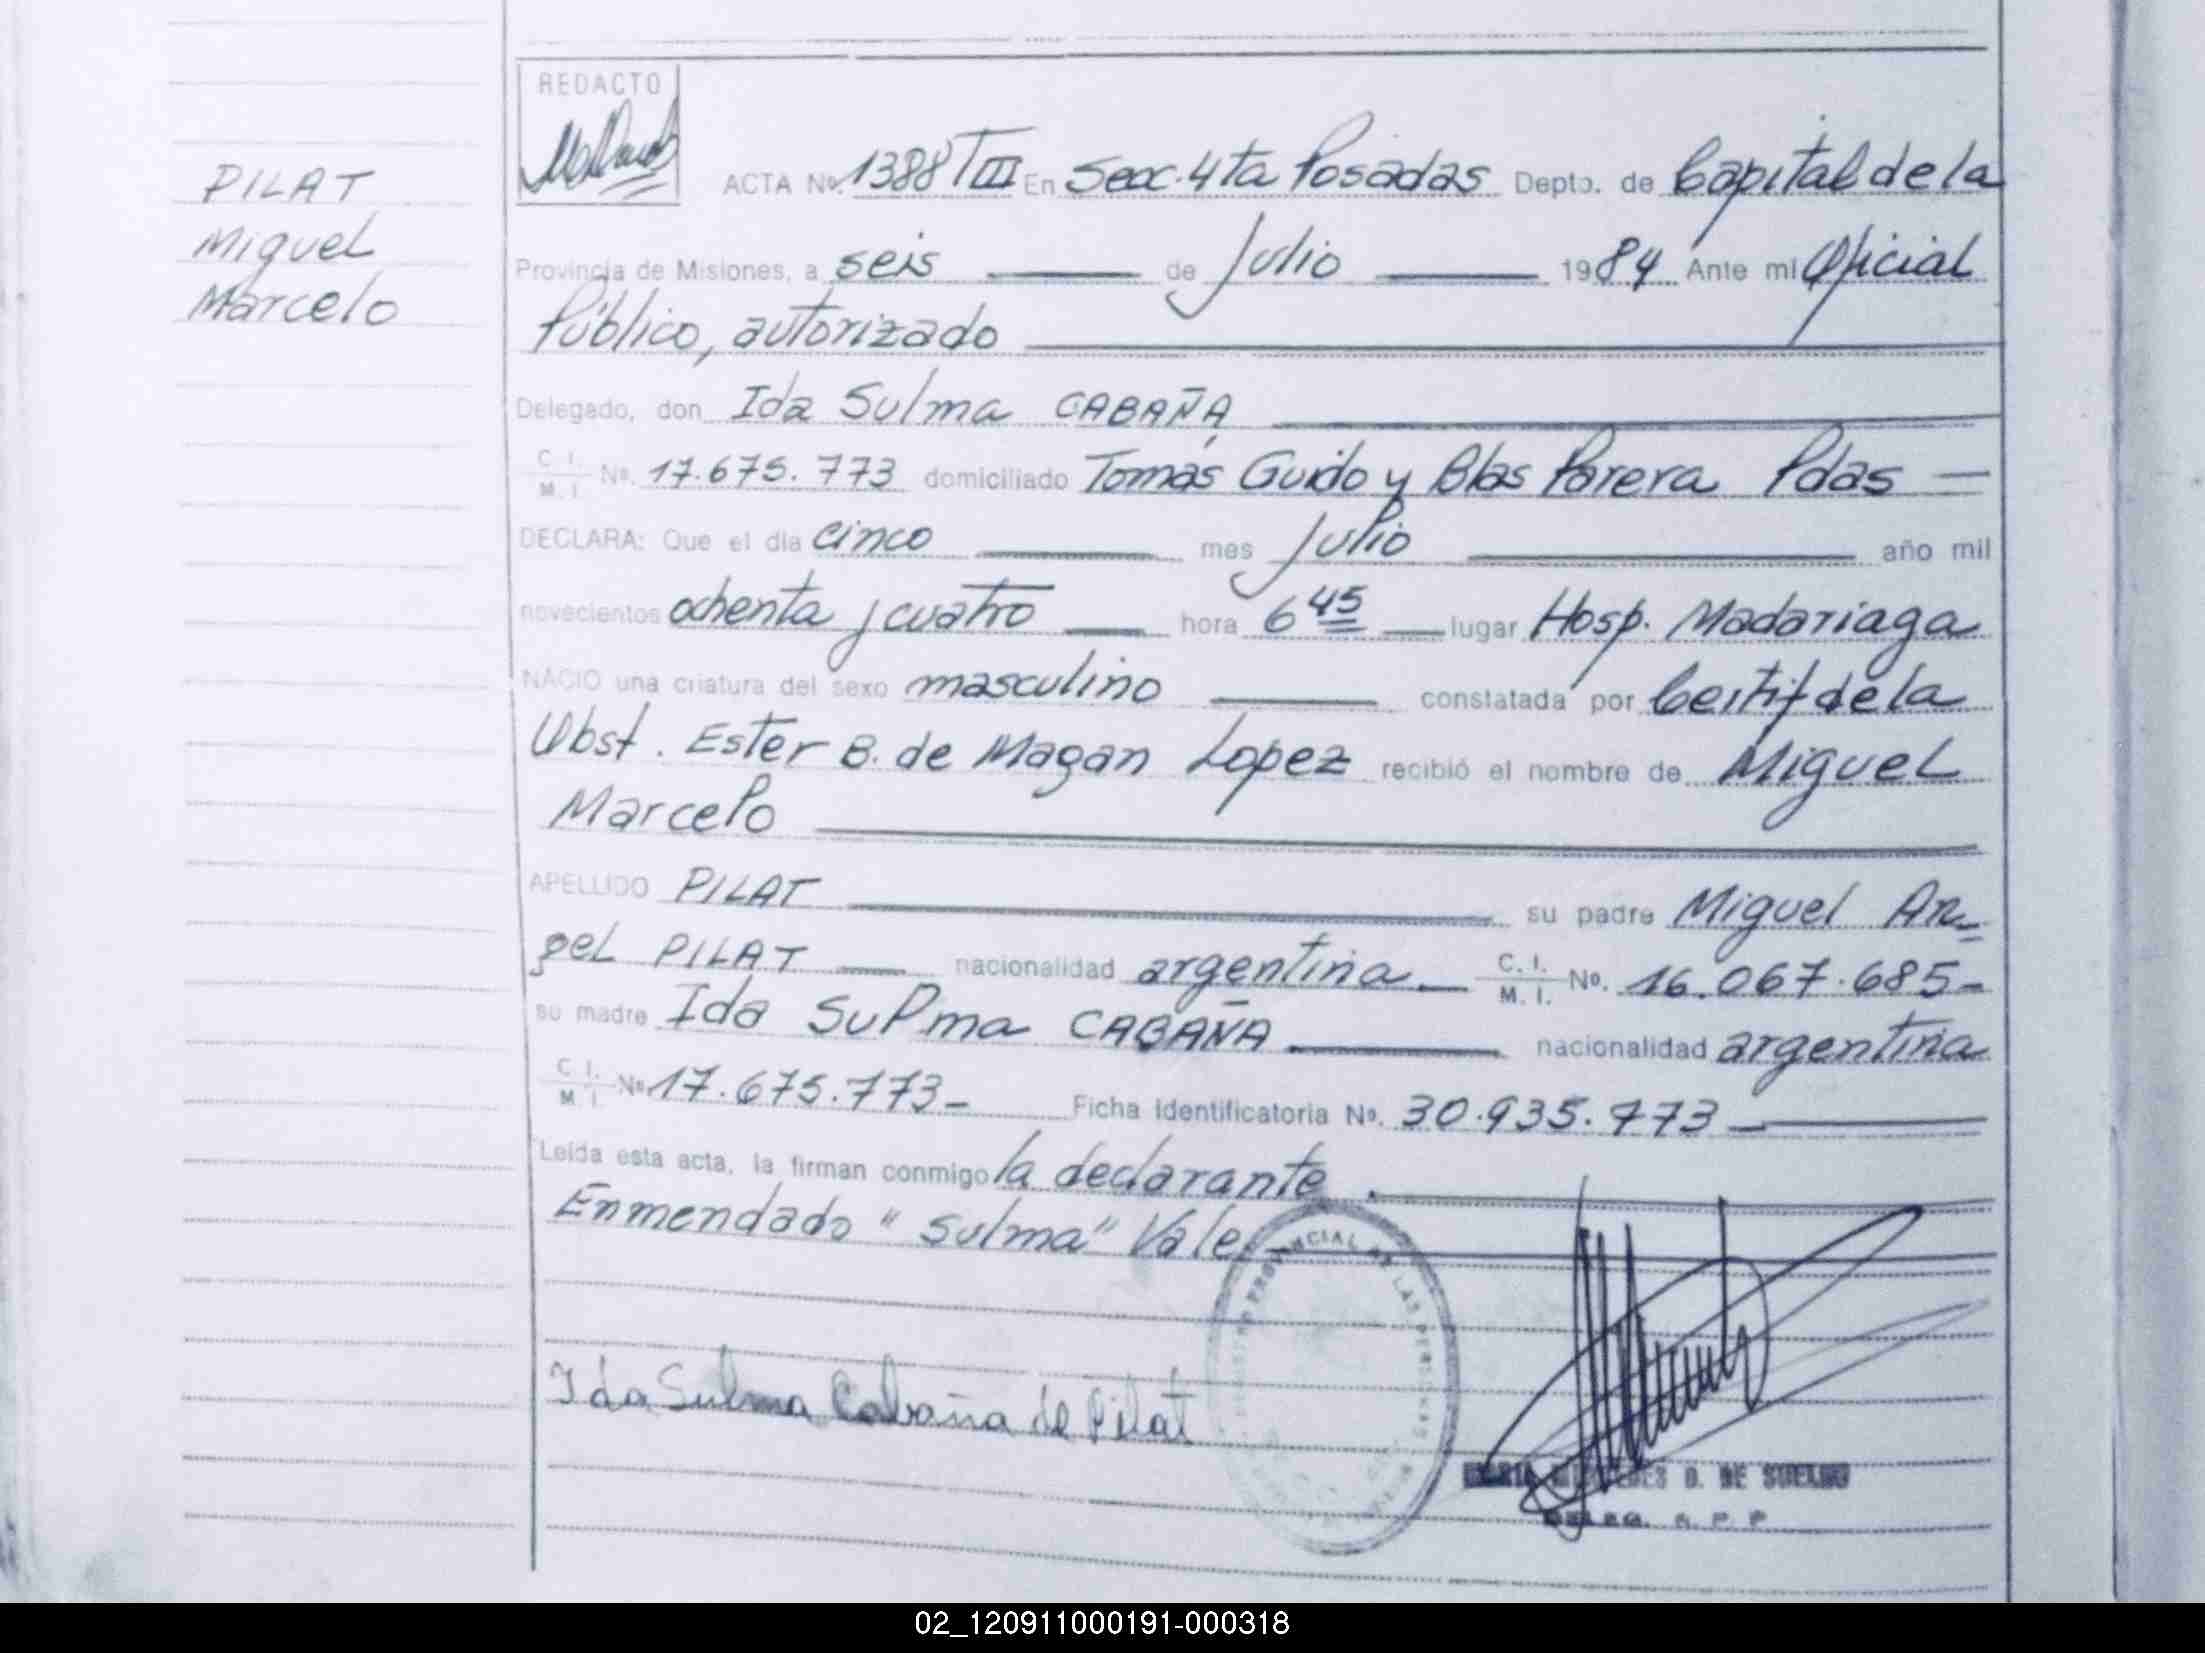 PILAT
Miguel
Marcelo
REDACTO
ACTA Nº. 1388 TIII En Secc. 4ta Posadas Depto. de Capital de la
Provincia de Misiones, a seis de Julio 1984 Ante mi Oficial
Público, autorizado
Delegado, don Ida Sulma CABAÑA
C. I. / M. I. Nº. 17.675.773 domiciliado Tomás Guido y Blas Parera Pdas
DECLARA: Que el día cinco mes Julio año mil
novecientos ochenta y cuatro hora 6 45 lugar Hosp. Madariaga
NACIO una criatura del sexo masculino constatada por Certif de la
Obst. Ester B. de Magan Lopez recibió el nombre de Miguel
Marcelo
APELLIDO PILAT su padre Miguel An-
gel PILAT nacionalidad argentina C. I. / M. I. Nº. 16.067.685-
su madre Ida Sulma CABAÑA nacionalidad argentina
C. I. / M. I. Nº 17.675.773- Ficha Identificatoria Nº. 30.935.773
Leída esta acta, la firman conmigo la declarante.
Enmendado "Sulma" Vale
PROVINCIAL DE LAS PERSONAS
Ida Sulma Cabaña de Pilat
D. DE
02_120911000191-000318